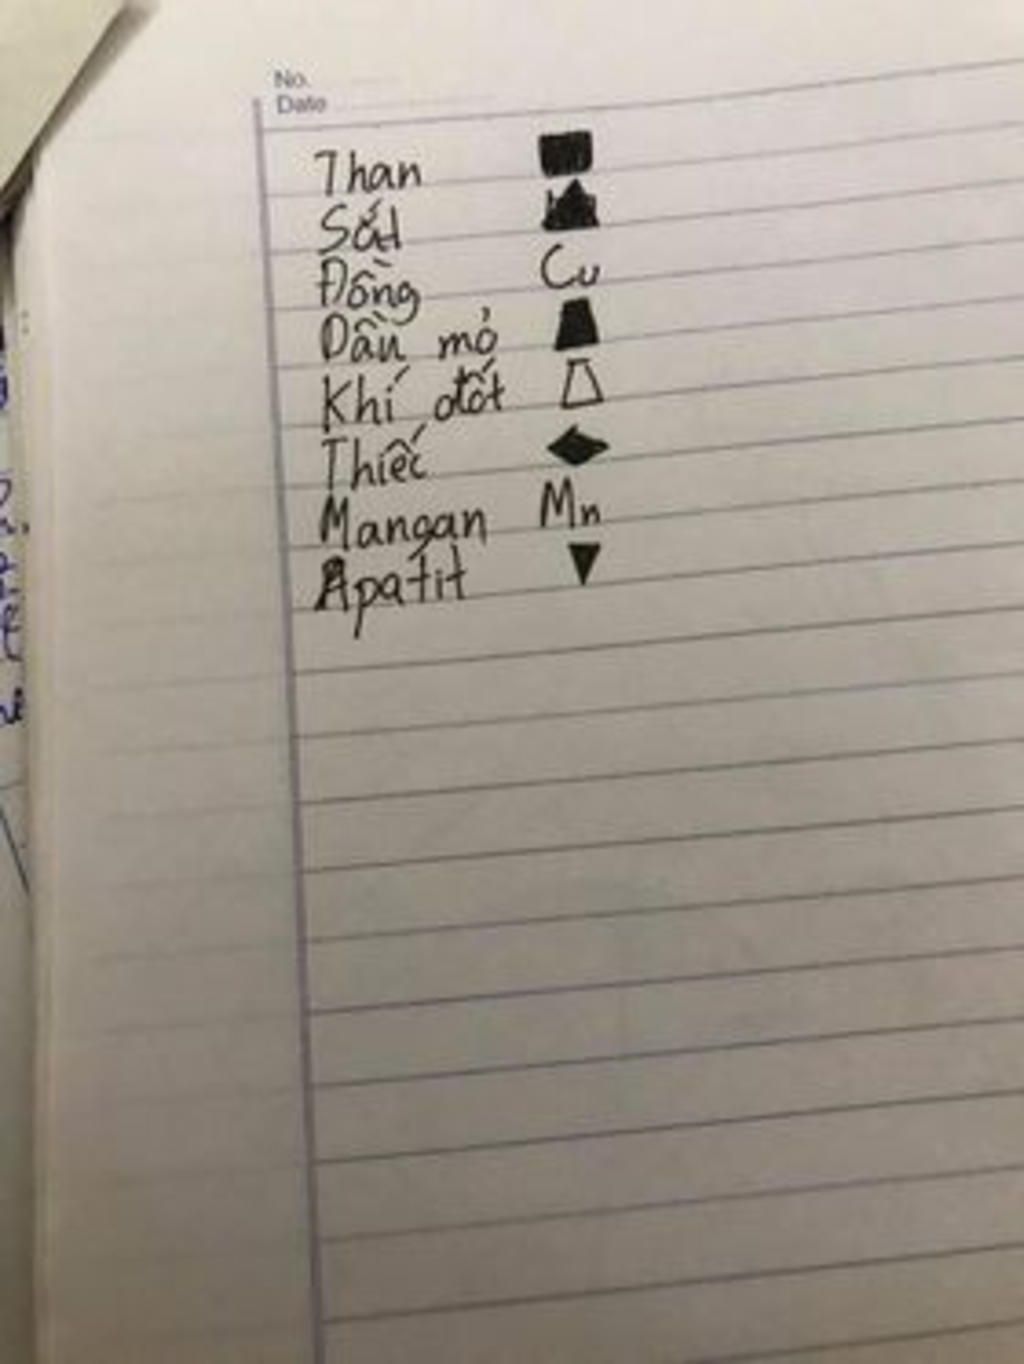 No.
Date
Than
Sắt
Đồng Cu
Dầu mỏ
Khí đốt
Thiếc
Mangan Mn
Apatit